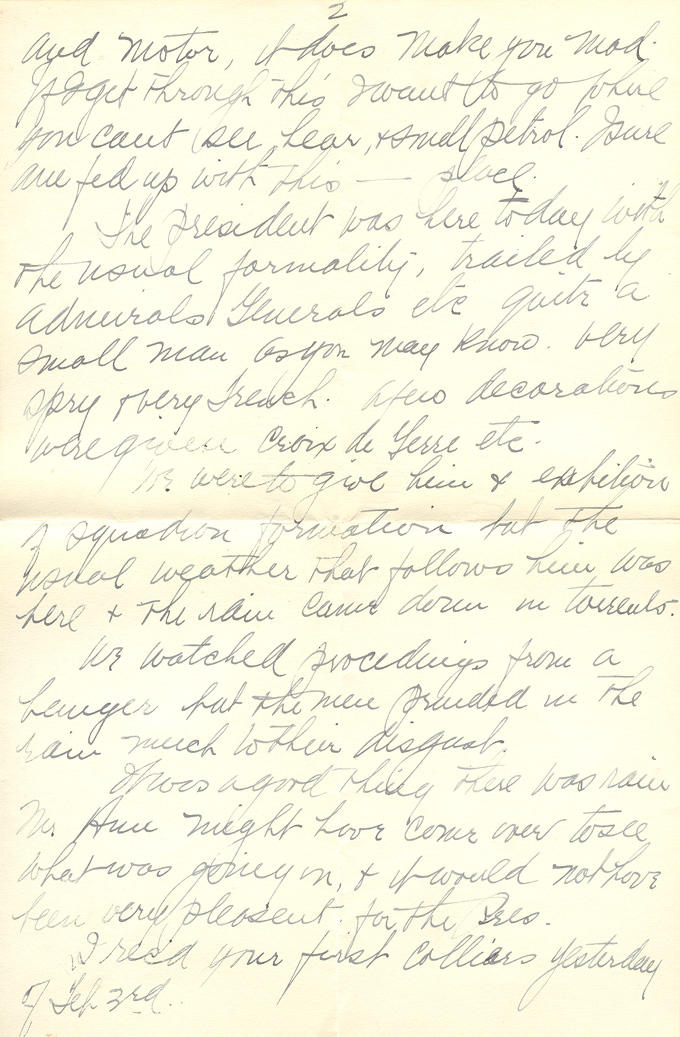 2
and motor, it does make you mad.
If I get through this I want to go where
you cant see, hear, & smell petrol. I sure
am fed up with this —
The President was here today with
the usual formality, trailed by
admirals Generals etc quite a
small man as you may know. very
spry & very French. a few decorations
were given Croix de Gerre etc.
We were to give him & exibition
of squadron formation but the
usual weather that follows him was
here & the rain came down in torrents.
We watched procedings from a
hanger but the men praided in the
rain much to their disgust.
It was a good thing there was rain
Mr. Hun might have come over to see
what was going on, & it would not have
been very pleasent for the Pres.
I rec'd your first Colliers yesterday
of Feb 3rd.